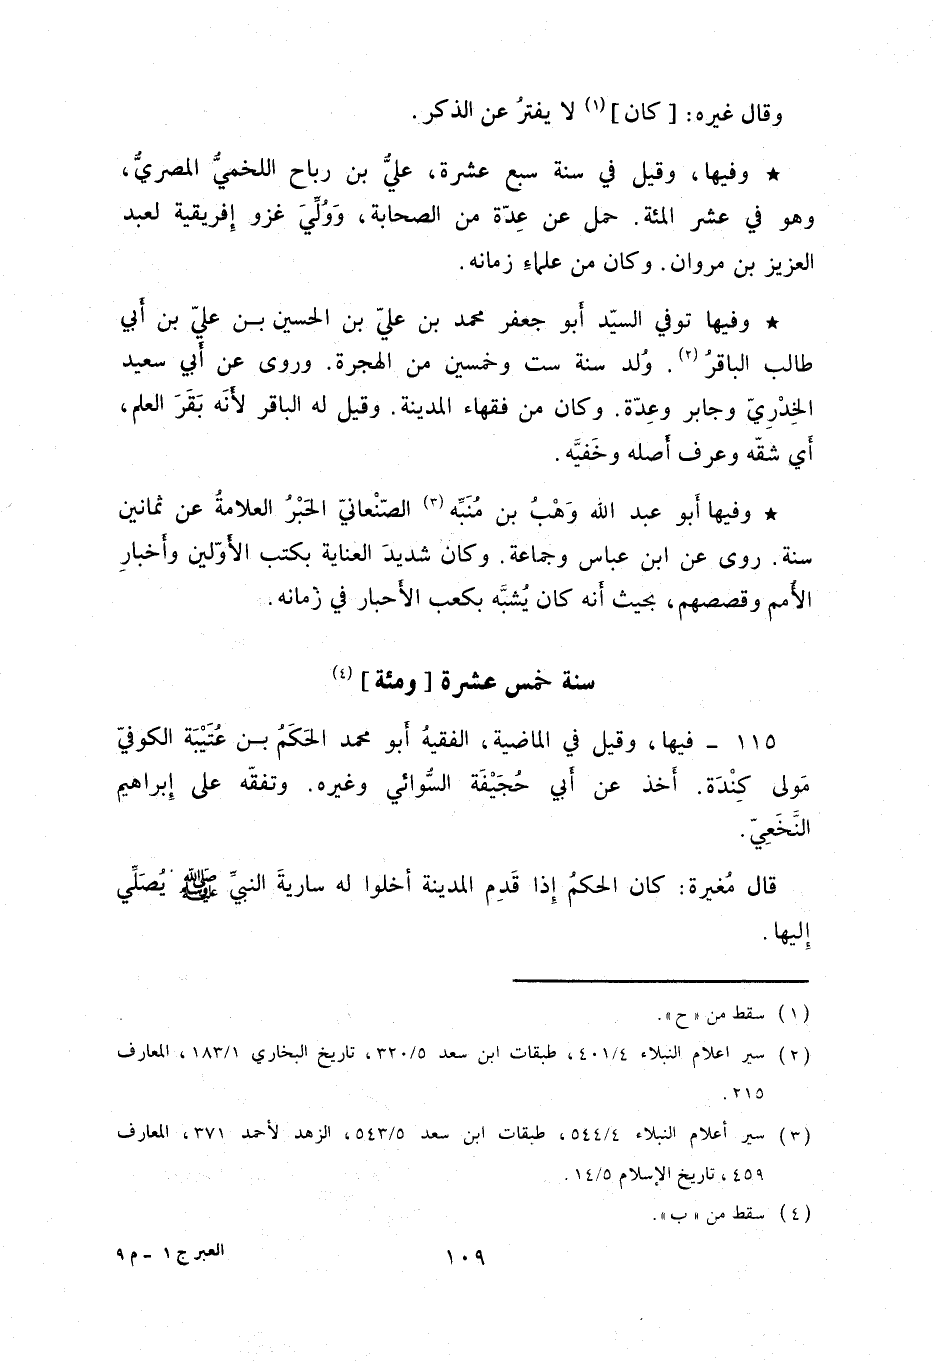 وقال غيره: [ كان ] (١) لا يفترُ عن الذكر.
★ وفيها، وقيل في سنة سبع عشرة، عليُّ بن رباح اللخميُّ المصريُّ،
وهو في عشر المئة. حمل عن عِدّة من الصحابة، وَوُلِّيَ غزو إفريقية لعبد
العزيز بن مروان. وكان من علماءِ زمانه.
★ وفيها توفي السيّد أَبو جعفر محمد بن عليّ بن الحسين بن عليّ بن أَبي
طالب الباقرُ (٢). وُلد سنة ست وخمسين من الهجرة. وروى عن أَبي سعيد
الخِدْرِيّ وجابر وعِدّة. وكان من فقهاء المدينة. وقيل له الباقر لأَنَه بَقَرَ العلم،
أَي شقّه وعرف أَصله وخَفيَّه.
★ وفيها أَبو عبد الله وَهْبُ بن مُنَبِّه (٣) الصّنْعانيّ الحَبْرُ العلامةُ عن ثمانين
سنة. روى عن ابن عباس وجماعة. وكان شديدَ العناية بكتب الأَوّلين وأَخبارِ
الأُمم وقصصهم، بحيث أَنه كان يُشبَّه بكعب الأَحبار في زمانه.
سنة خمس عشرة [ ومئة ] (٤)
١١٥ ـ فيها، وقيل في الماضية، الفقيهُ أَبو محمد الحَكَمُ بن عُتَيْبَة الكوفيّ
مَولى كِنْدَة. أَخذ عن أَبي حُجَيْفَة السُّوائي وغيره. وتفقّه على إِبراهيم
النَّخَعِيّ.
قال مُغيرة: كان الحكمُ إِذا قَدِم المدينة أَخلوا له ساريةَ النبيِّ ﷺ يُصَلِّي
إِليها.
(١) سقط من «ح».
(٢) سير اعلام النبلاء ٤٠١/٤، طبقات ابن سعد ٣٢٠/٥، تاريخ البخاري ١٨٣/١، المعارف
٢١٥.
(٣) سير أعلام النبلاء ٥٤٤/٤، طبقات ابن سعد ٥٤٣/٥، الزهد لأحمد ٣٧١، المعارف
٤٥٩، تاريخ الإسلام ١٤/٥.
(٤) سقط من «ب».
١٠٩
العبر ج ١ - م ٩